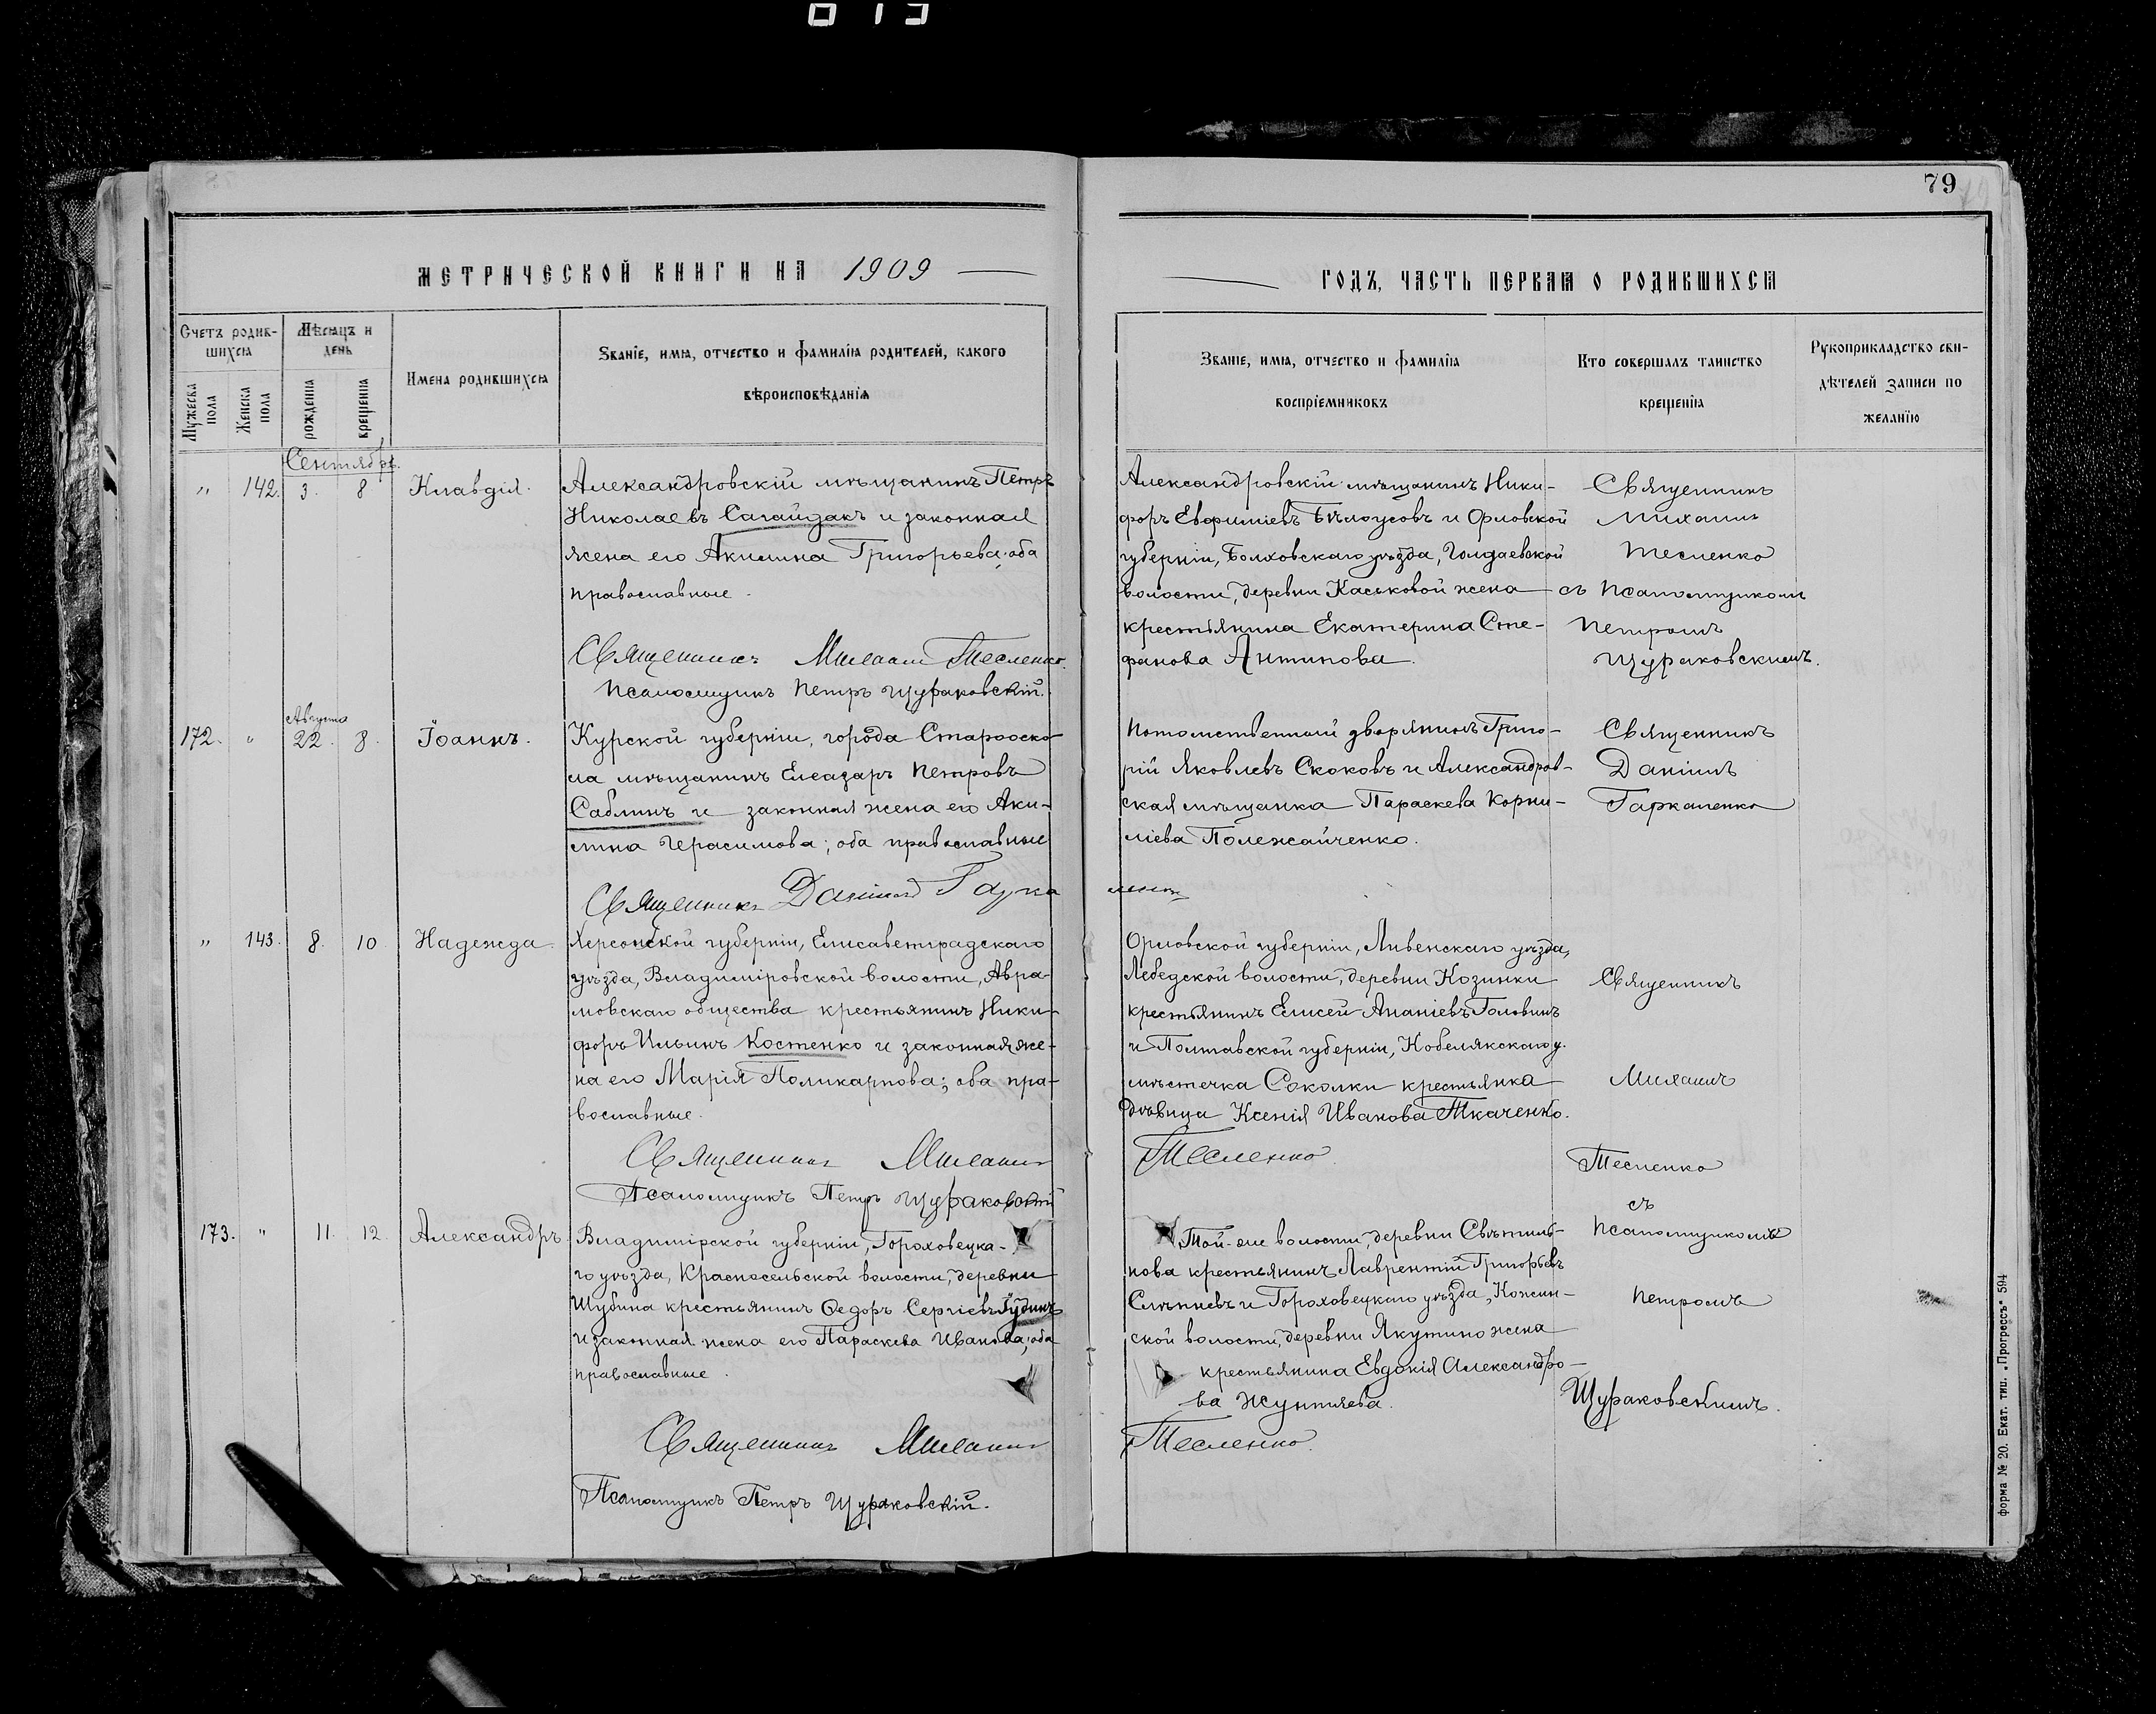 79
МЕТРИЧЕСКОЙ КНИГИ НА 1909
ГОДЪ, ЧАСТЬ ПЕРВАЯ О РОДИВШИХСЯ
Счетъ родив-
шихся
Мѣсяцъ и
день
Мужеска
пола
Женска
пола
рожденія
крещенія
Имена родившихся
Званіе, имя, отчество и фамилія родителей, какого
вѣроисповѣданія
Званіе, имя, отчество и фамилія
воспріемниковъ
Кто совершалъ таинство
крещенія
Рукоприкладство сви-
дѣтелей записи по
желанію
Сентябрь.
" 142. 3. 8 Клавдія.
Александровскій мѣщанинъ Петръ
Николаевъ Сагайдакъ и законная
жена его Акилина Григорьева; оба
православные.
Священникъ Михаилъ Тесленко.
Псаломщикъ Петръ Щураковскій.
Александровскій мѣщанинъ Ники-
форъ Евфиміевъ Бѣлоусовъ и Орловской
губерніи, Болховскаго уѣзда, Голдаевской
волости, деревни Каськовой жена
крестьянина Екатерина Сте-
фанова Антипова.
Священникъ
Михаилъ
Тесленко
съ псаломщикомъ
Петромъ
Щураковскимъ.
Августа
172. " 22. 8. Іоаннъ.
Курской губерніи, города Староско-
ла мѣщанинъ Елеазаръ Петровъ
Саблинъ и законная жена его Аки-
лина Герасимова; оба православные
Священникъ Даніилъ Гарка
ленко
Потомственный дворянинъ Григо-
рій Яковлевъ Скоковъ и Александров-
ская мѣщанка Параскева Корни-
ліева Полежайченко.
Священникъ
Даніилъ
Гаркаленко
" 143. 8. 10 Надежда
Херсонской губерніи, Елисаветградскаго
уѣзда, Владиміровской волости, Авра-
мовскаго общества крестьянинъ Ники-
форъ Ильинъ Костенко и законная же-
на его Марія Поликарпова; оба пра-
вославные.
Священникъ Михаилъ
Тесленко
Псаломщикъ Петръ Щураковскій
Орловской губерніи, Ливенскаго уѣзда,
Лебедской волости, деревни Козинки
крестьянинъ Елисей Ананіевъ Головинъ
и Полтавской губерніи, Кобелякскаго у.
мѣстечка Соколки крестьянка
дѣвица Ксенія Иванова Ткаченко.
Священникъ
Михаилъ
Тесленко
съ
псаломщикомъ
Петромъ
Щураковскимъ.
173. " 11. 12. Александръ.
Владимірской губерніи, Гороховецка-
го уѣзда, Красносельской волости, деревни
Шубина крестьянинъ Ѳедоръ Сергіевъ Гудинъ
и законная жена его Параскева Иванова; оба
православные.
Священникъ Михаилъ
Тесленко.
Псаломщикъ Петръ Щураковскій.
Той-же волости, деревни Свѣтиль-
нова крестьянинъ Лаврентій Григорьевъ
Слѣпневъ и Гороховецкаго уѣзда, Кожин-
ской волости, деревни Якутино жена
крестьянина Евдокія Александро-
ва
форма № 20. Екат. тип. „Прогрессъ" 594